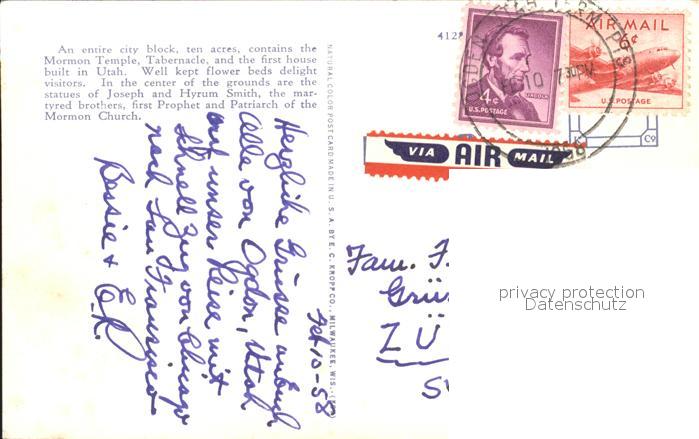 An entire city block, ten acres, contains the
Mormon Temple, Tabernacle, and the first house
built in Utah. Well kept flower beds delight
visitors. In the center of the grounds are the
statues of Joseph and Hyrum Smith, the mar-
tyred brothers, first Prophet and Patriarch of the
Mormon Church.
Feb 10-58
Herzliche Grüsse an Euch
Alle von Ogden, Utah
auf unser Reise mit
Schnell Zug von Chicago
nach San Francisco
Bessie & E.R.
NATURAL COLOR POST CARD MADE IN U. S. A. BY E. C. KROPP CO., MILWAUKEE, WIS.
412
4¢
LINCOLN
U.S. POSTAGE
AIR MAIL
6¢
U.S. POSTAGE
OGDEN
10
730PM
1958
VIA AIR MAIL
C9
Fam. F.
Grü
ZÜ
privacy protection
Datenschutz